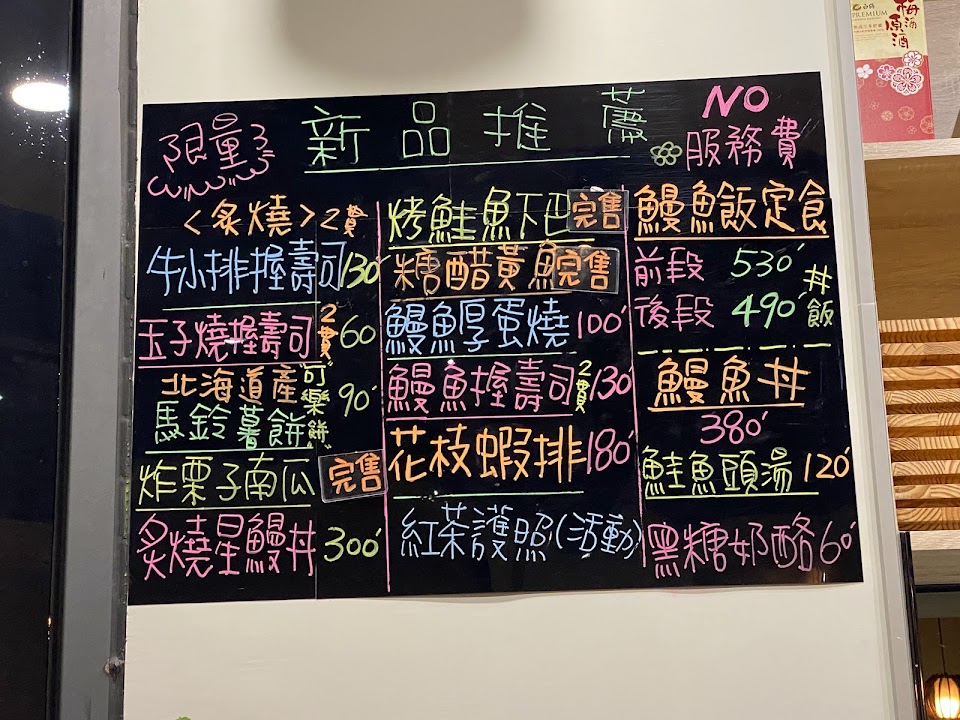 限量
新品推薦
NO
服務費
<炙燒>2貫
牛小排握壽司130
玉子燒握壽司2貫60
北海道產
馬鈴薯餅
可樂餅
90
炸栗子南瓜
完售
炙燒星鰻丼300
烤鮭魚下巴
完售
糖醋黃魚
完售
鰻魚厚蛋燒100
鰻魚握壽司2貫130
花枝蝦排180
紅茶護照(活動)
鰻魚飯定食
前段 530
後段 490
丼飯
鰻魚丼
380
鮭魚頭湯120
黑糖奶酪60
PREMIUM
梅酒原酒